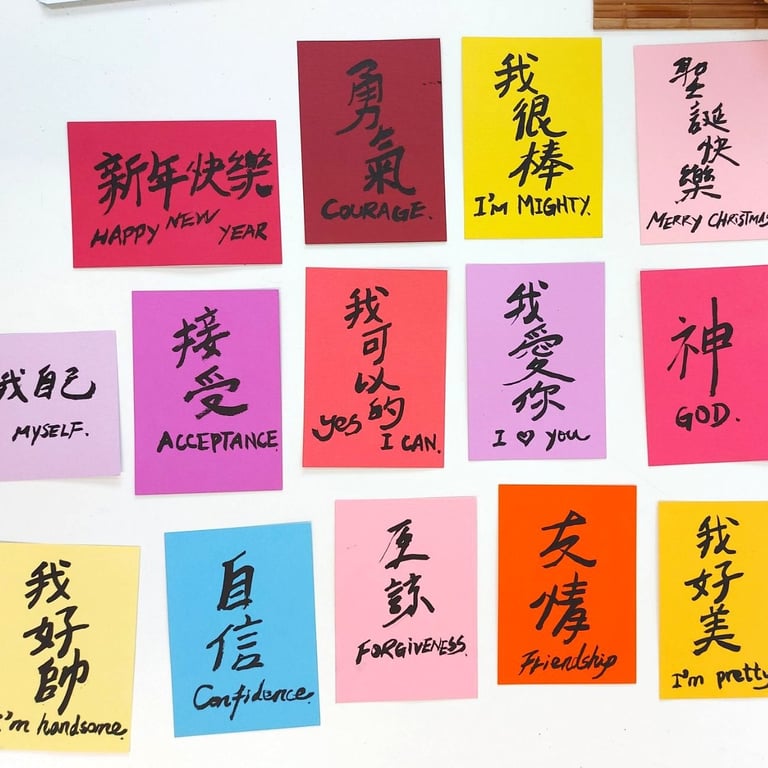 新年快樂
HAPPY NEW YEAR
勇氣
COURAGE.
我很棒
I'M MIGHTY.
聖誕快樂
MERRY CHRISTMAS
我自己
MYSELF.
接受
ACCEPTANCE
我可以的
yes I CAN.
我愛你
I ♡ you
神
GOD.
我好帥
I'm handsome.
自信
Confidence.
原諒
FORGIVENESS.
友情
Friendship
我好美
I'm pretty